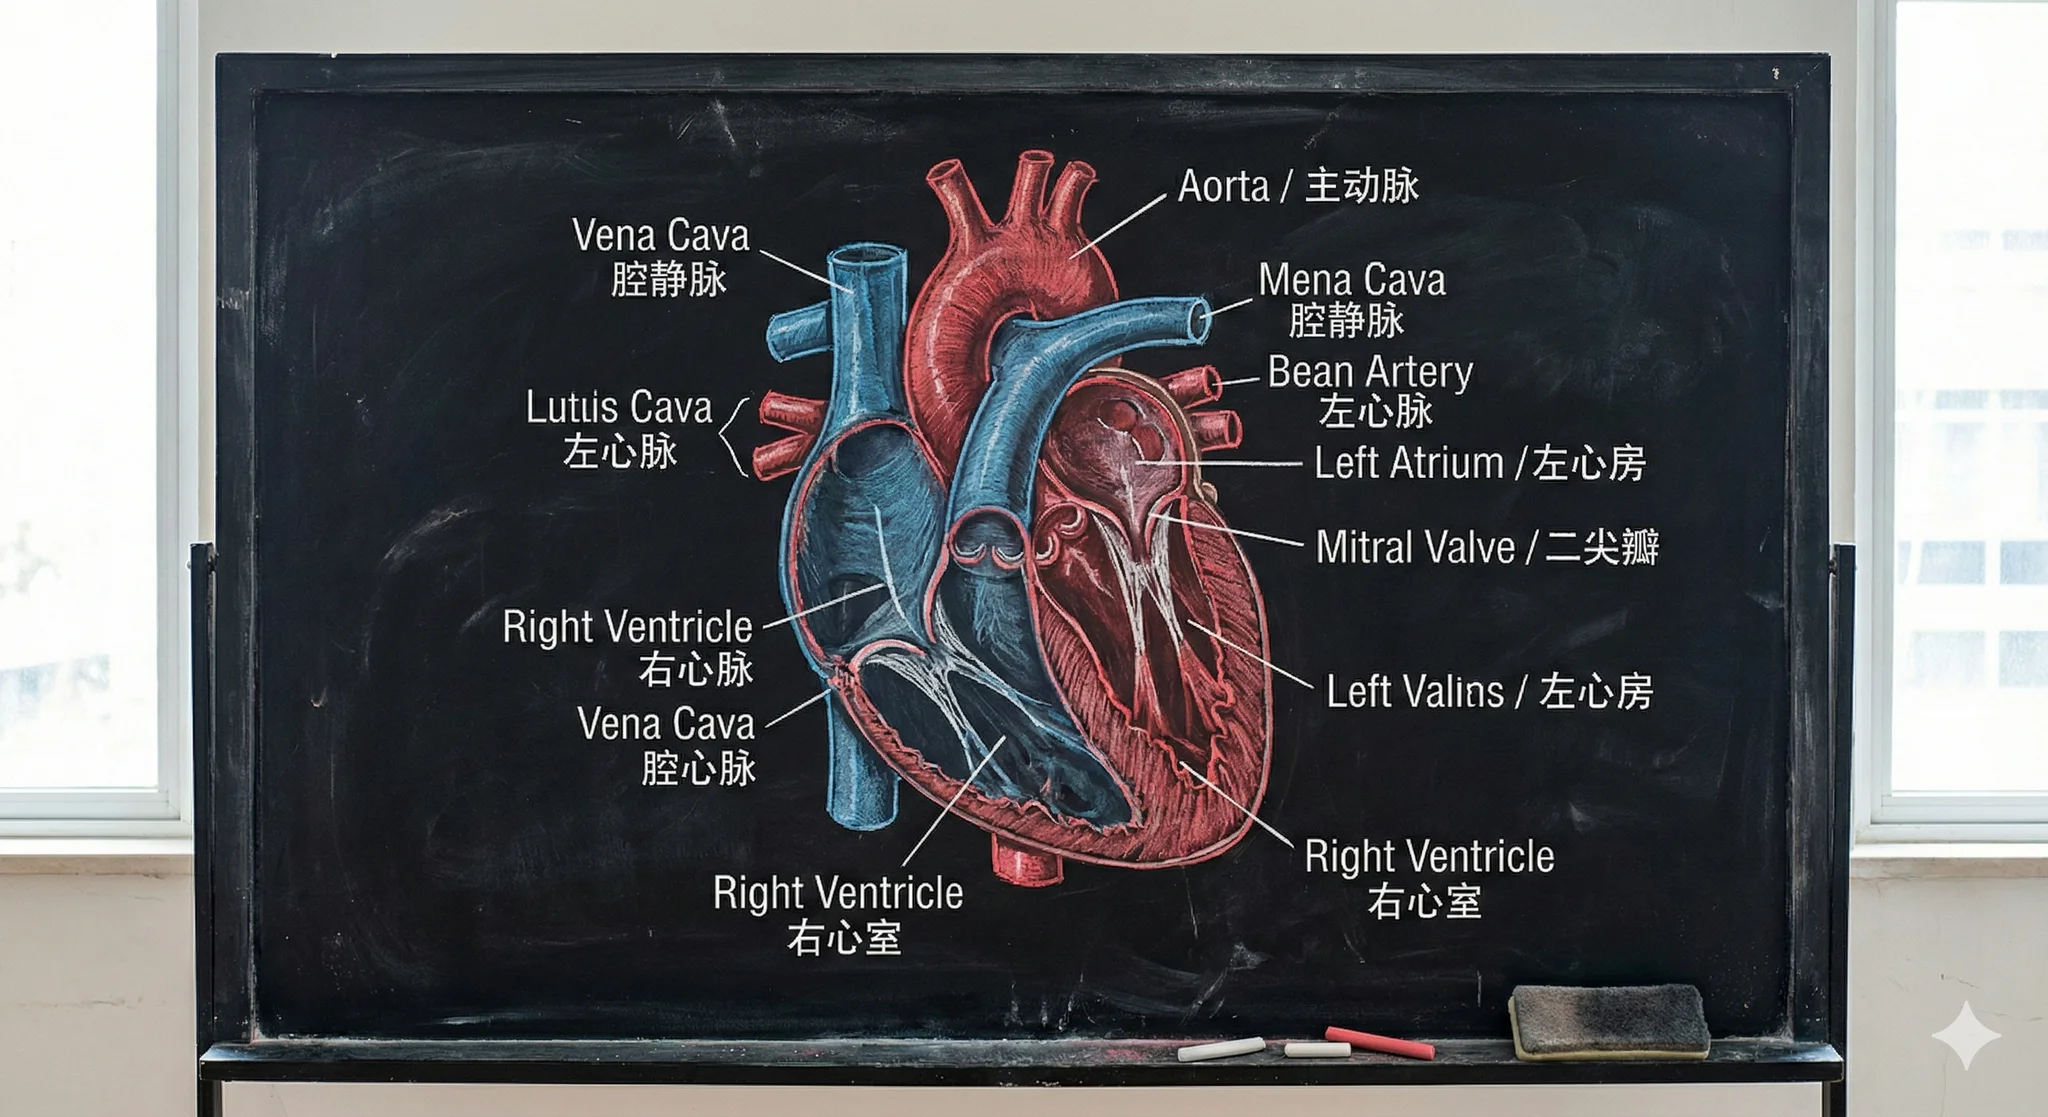 Aorta / 主动脉
Vena Cava
腔静脉
Mena Cava
腔静脉
Bean Artery
左心脉
Lutus Cava
左心脉
Left Atrium / 左心房
Mitral Valve / 二尖瓣
Right Ventricle
右心脉
Left Valins / 左心房
Vena Cava
腔心脉
Right Ventricle
右心室
Right Ventricle
右心室